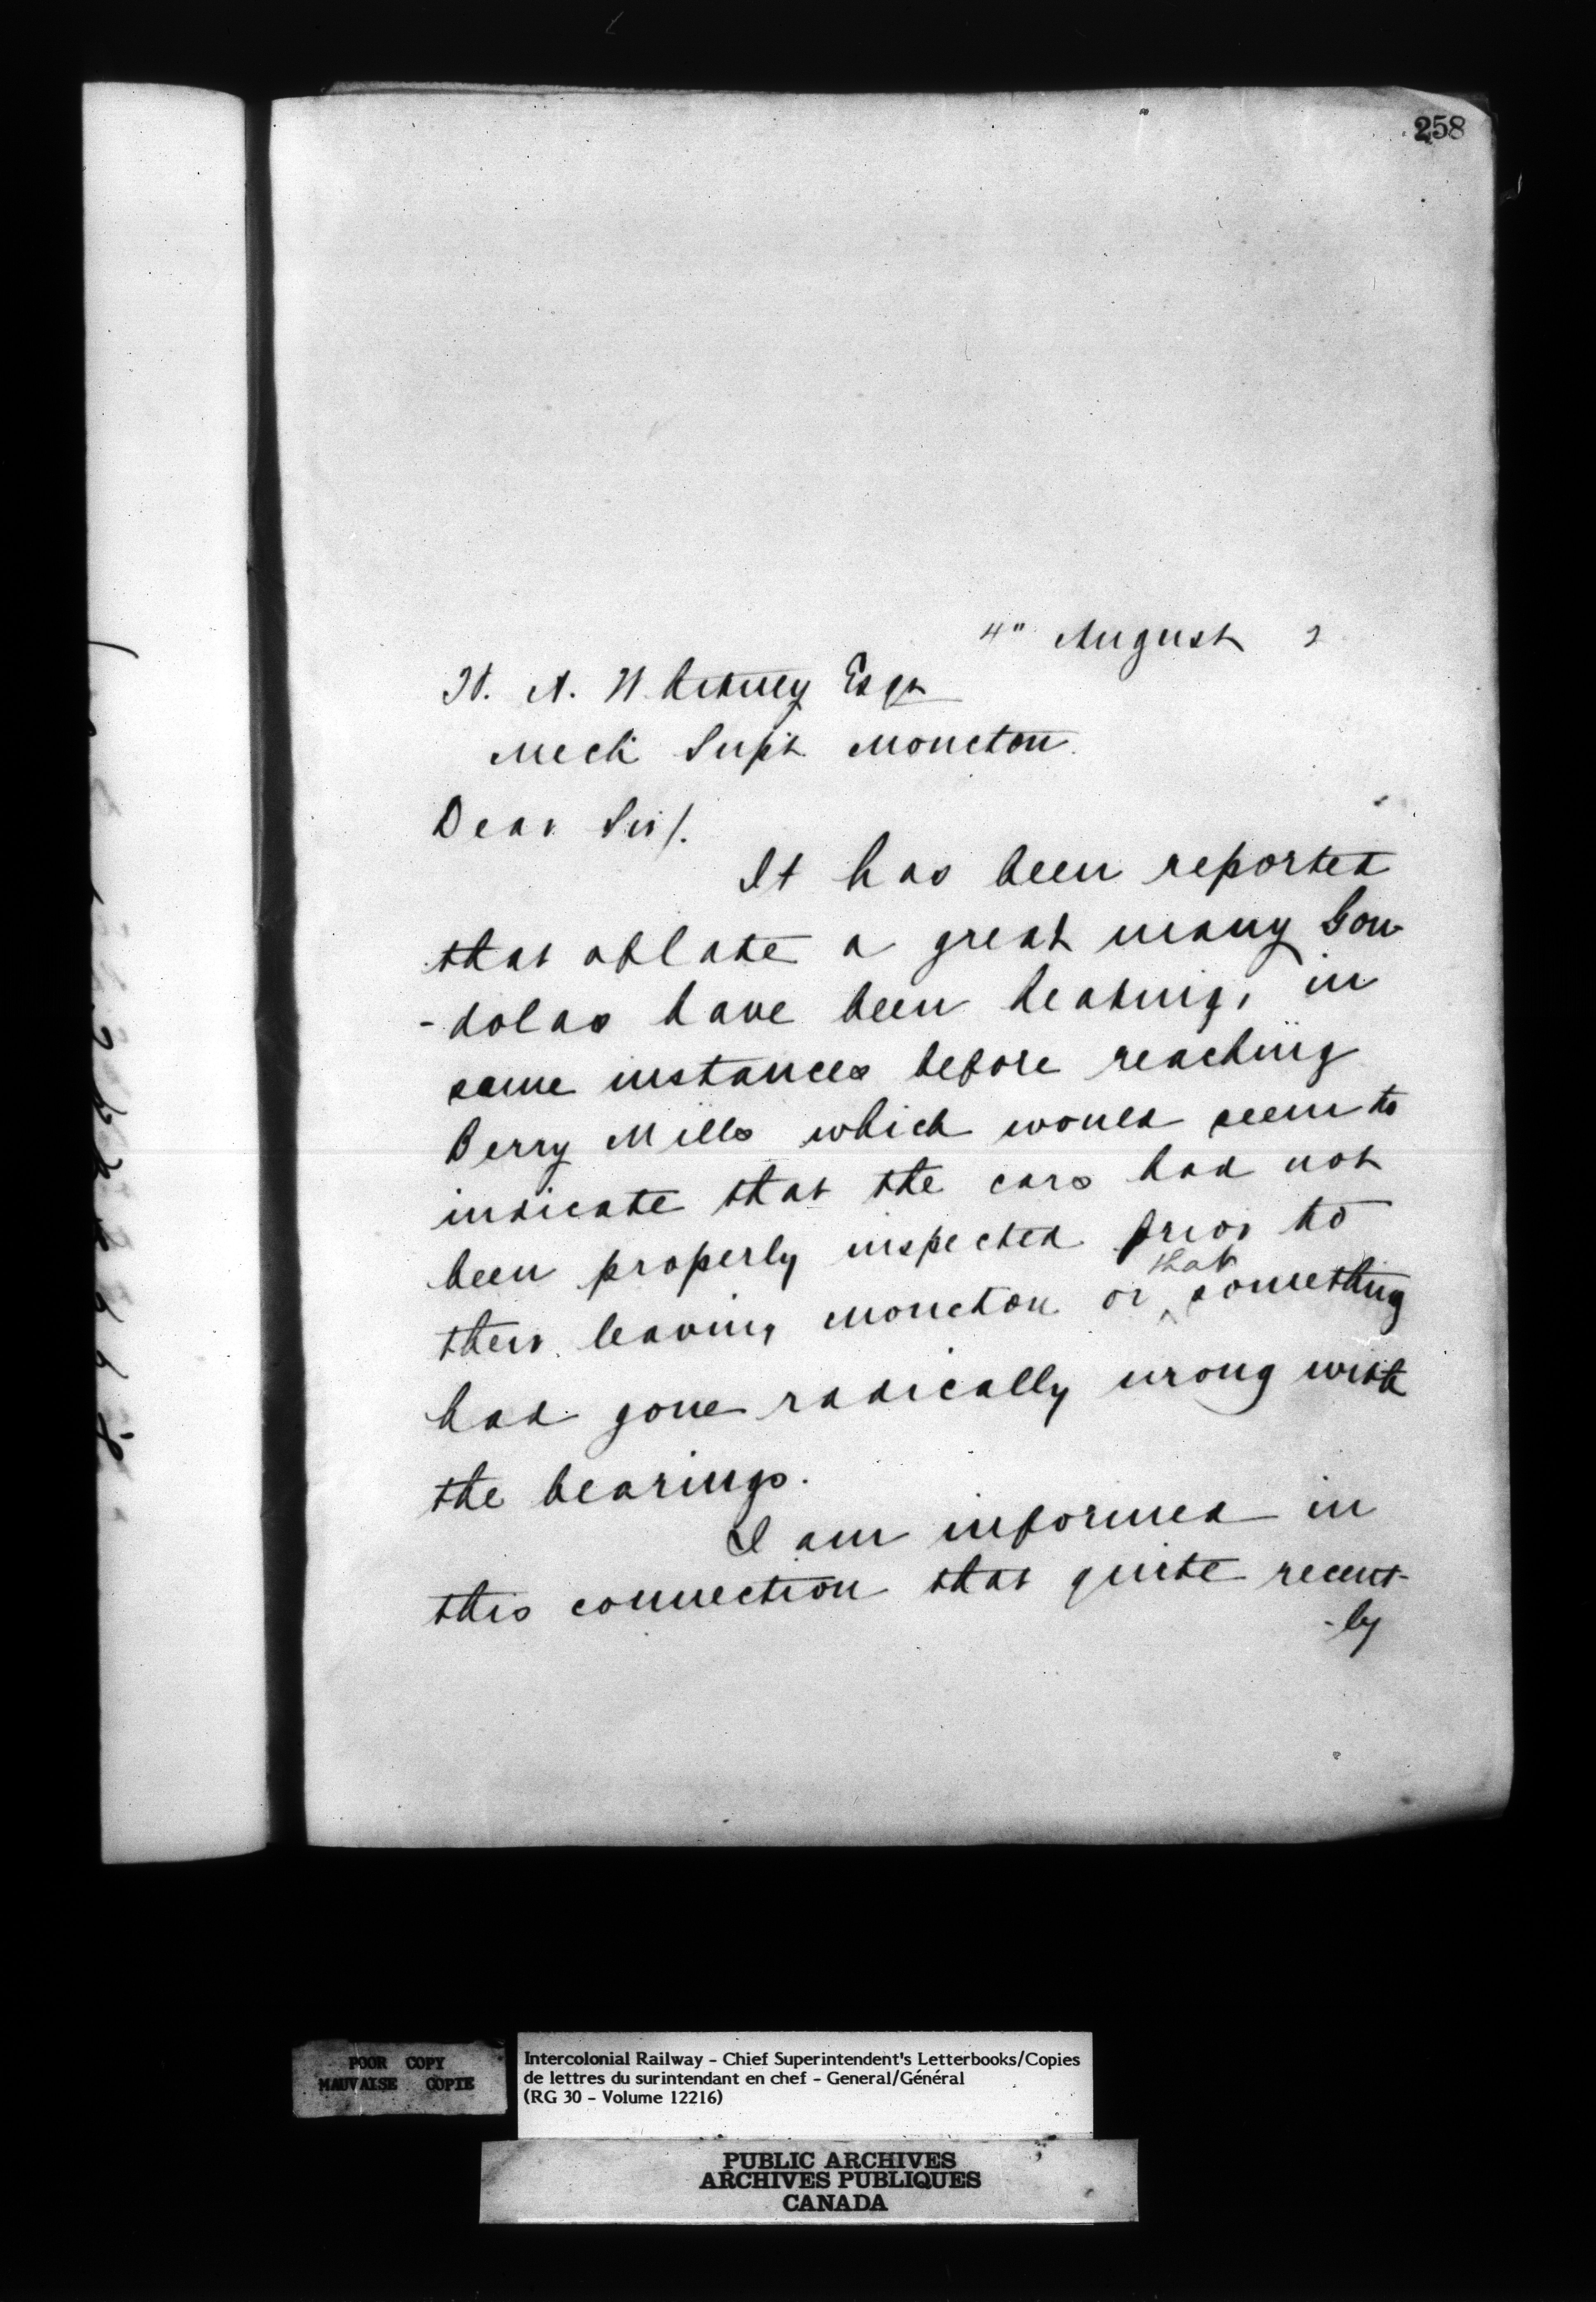 258
4" August 2
H. A. Whitney Esqr
Mech Supt Moncton
Dear Sir/.
It has been reported
that of late a great many Gon-
-dolas have been heating, in
some instances before reaching
Berry Mills which would seem to
indicate that the cars had not
been properly inspected prior to
their leaving Moncton or that something
had gone radically wrong with
the bearings.
I am informed in
this connection that quite recent-
-ly
POOR COPY
MAUVAISE COPIE
Intercolonial Railway - Chief Superintendent's Letterbooks/Copies
de lettres du surintendant en chef - General/Général
(RG 30 - Volume 12216)
PUBLIC ARCHIVES
ARCHIVES PUBLIQUES
CANADA